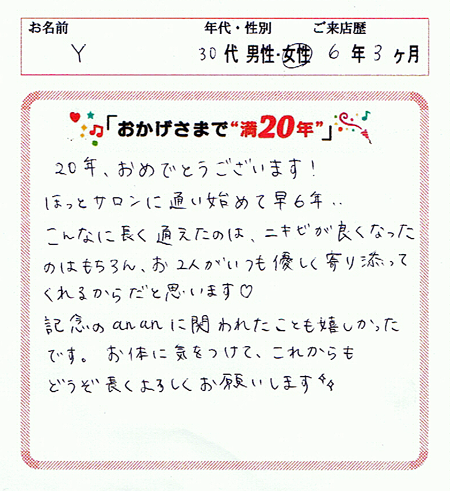 お名前 年代・性別 ご来店歴
Y 30代 男性・女性 6年3ヶ月
「おかげさまで“満20年”」
20年、おめでとうございます!
ほっとサロンに通い始めて早6年‥
こんなに長く通えたのは、ニキビが良くなった
のはもちろん、お2人がいつも優しく寄り添って
くれるからだと思います♡
記念のananに関われたことも嬉しかった
です。 お体に気をつけて、これからも
どうぞ長くよろしくお願いします